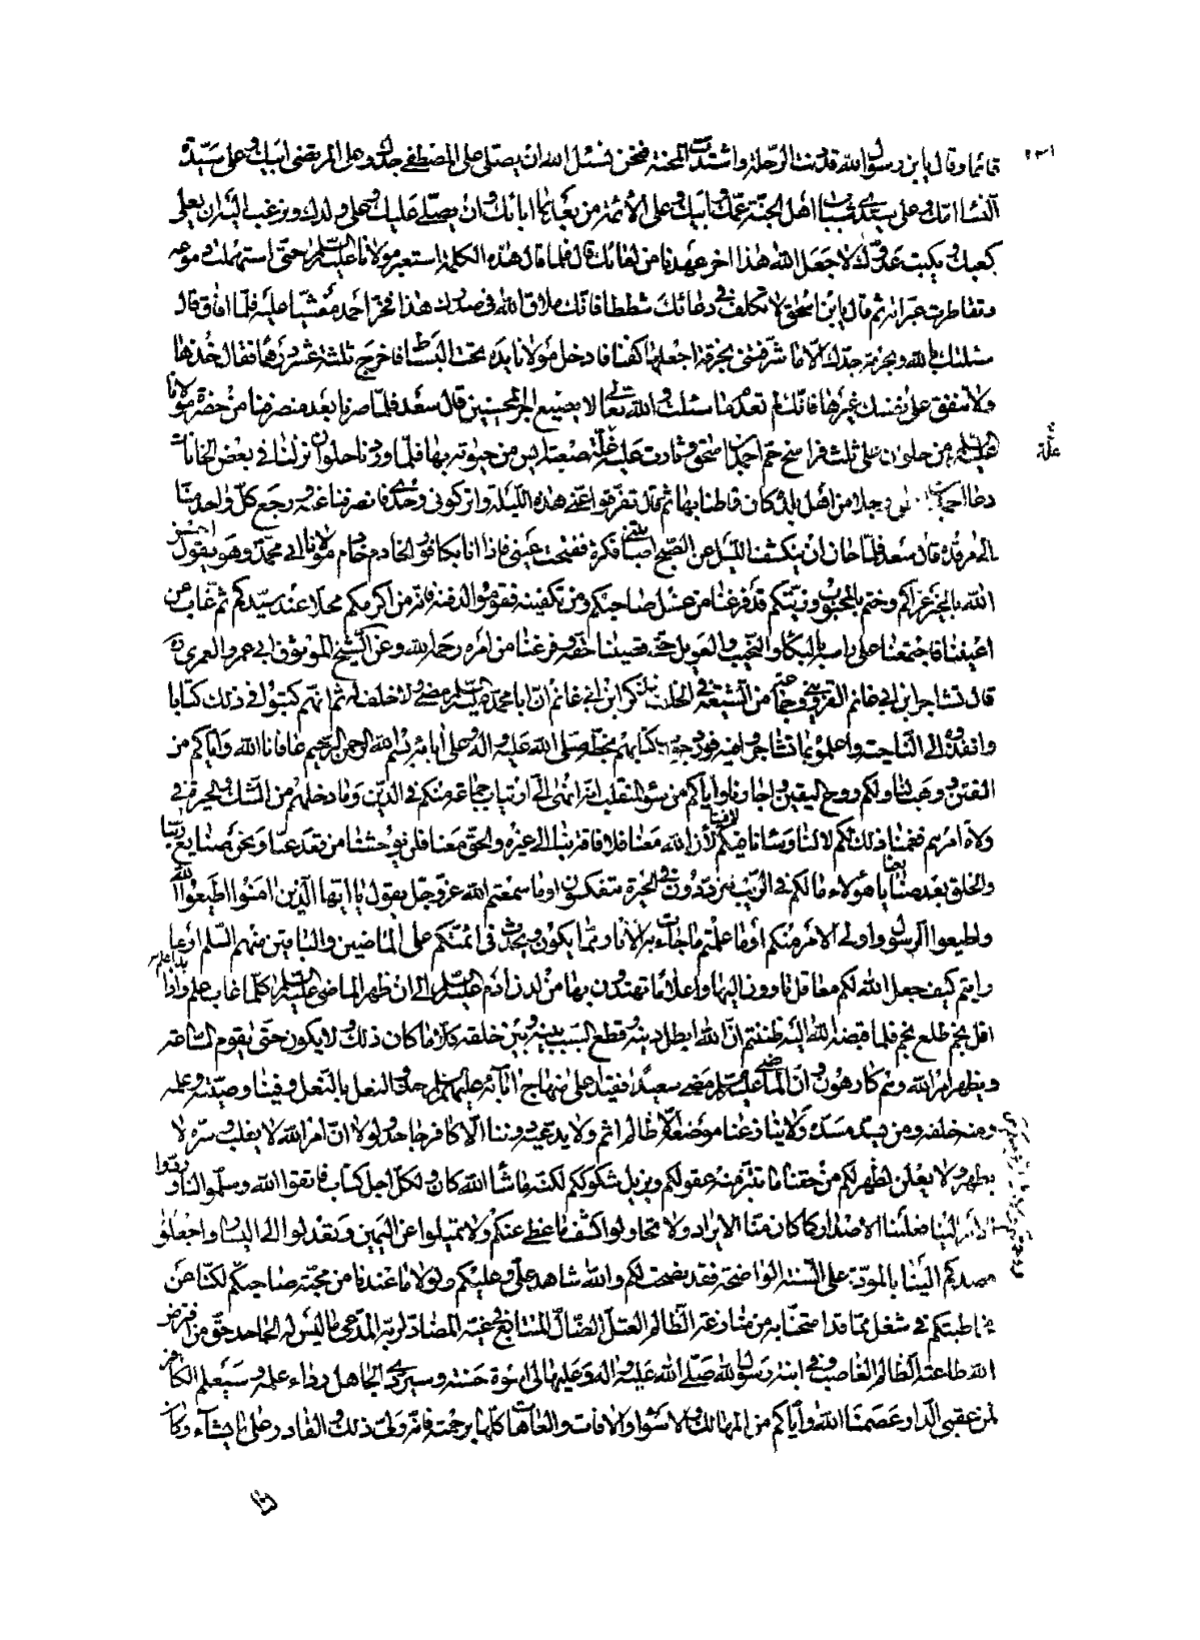 قائما وقال يا بن رسول الله قد دنت الرحلة واشتدت المحنة فنحن نسئل الله ان يصلى على المصطفى جدك وعلى المرتضى ابيك وعلى سيدة
النساء امك وعلى سيدى شباب اهل الجنة عمك وابيك وعلى الأئمة من بعدهما ابائك وان يصلى عليك وعلى ولدك ونرغب الى الله ان يعلى
كعبك ويكبت عدوك لا جعل الله هذا اخر عهدنا من لقائك قال فلما قال هذه الكلمة استعبر مولانا عليه السلم حتى استهملت دموعه
وتقاطرت عبراته ثم قال يا بن اسحق لا تكلف فى دعائك شططا فانك ملاق الله فى صدرك هذا فخر احمد مغشيا عليه فلما افاق قال
سئلتك بالله وبحرمة جدك الا ما شرفتنى بخرقة اجعلها كفنا فادخل مولانا يده تحت البساط فاخرج ثلثة عشر درهما فقال خذها
ولا تنفق على نفسك غيرها فانك لم تعدم ما سئلت والله تعالى لا يضيع اجر المحسنين قال سعد فلما صرنا بعد منصرفنا من حضرة مولانا
عليه السلم من حلوان على ثلث فراسخ حم احمد بن اسحق وثارت عليه علة صعبة ايس من حيوته بها فلما وردنا حلوان نزلنا فى بعض الخانات
دعا احمد رجلا من اهل بلده كان قاطنا بها ثم قال تفرقوا عنى هذه الليلة واتركونى وحدى فانصرفنا عنه ورجع كل واحد منا
الى مرقده قال سعد فلما حان ان ينكشف الليل عن الصبح اصابتنى فكرة ففتحت عينى فاذا انا بكافور الخادم خادم مولانا ابى محمد وهو يقول احسن
الله بالخير عزاكم وختم بالمحبوب رزيتكم قد فرغنا من غسل صاحبكم ومن تكفينه فقوموا لدفنه فانه من اكرمكم محلا عند سيدكم ثم غاب عن
اعيننا فاجتمعنا على راسه بالبكاء والنحيب والعويل حتى قضينا حقه وفرغنا من امره رحمه الله وعن الشيخ الموثوق ابى عمرو العمرى ره
قال تشاجر ابن ابى غانم القزوينى وجماعة من الشيعة فى الخلف فذكر ابن ابى غانم ان ابا محمد عليه السلم مضى ولا خلف له ثم انهم كتبوا فى ذلك كتابا
وانفذوه الى الناحية واعلموا بما تشاجروا فيه فورد جواب كتابهم بخطه صلى الله عليه واله وعلى ابائه بسم الله الرحمن الرحيم عافانا الله واياكم من
الفتن ووهب لنا ولكم روح اليقين واجارنا واياكم من سوء المنقلب انه انهى الى ارتياب جماعة منكم فى الدين وما دخلهم من الشك والحيرة فى
ولاة امرهم فغمنا ذلك لكم لا لنا وساءنا فيكم لا فينا لأن الله معنا فلا فاقة بنا الى غيره والحق معنا فلن يوحشنا من قعد عنا ونحن صنايع ربنا
والخلق بعد صنايعنا يا هؤلاء ما لكم فى الريب تترددون وفى الحيرة تنعكسون اوما سمعتم الله عز وجل يقول يا ايها الذين امنوا اطيعوا الله
واطيعوا الرسول واولى الامر منكم اوما علمتم ما جاءت به الاثار مما يكون ويحدث فى ائمتكم على الماضين والباقين منهم السلم اوما
رايتم كيف جعل الله لكم معاقل تاوون اليها واعلاما تهتدون بها من لدن ادم عليه السلم الى ان ظهر الماضى عليه السلم كلما غاب علم بدا علم واذا
افل نجم طلع نجم فلما قبضه الله اليه ظننتم ان الله ابطل دينه وقطع السبب بينه وبين خلقه كلا ما كان ذلك ولا يكون حتى يقوم الساعة
ويظهر امر الله وهم كارهون وان الماضى عليه السلم مضى سعيدا فقيدا على منهاج ابائه عليهم السلم حذو النعل بالنعل وفينا وصيته وعلمه
ومنه خلفه ومن يسد مسده ولا ينازعنا موضعه الا ظالم اثم ولا يدعيه دوننا الا كافر جاحد ولولا ان امر الله لا يغلب وسره لا
يظهر ولا يعلن لظهر لكم من حقنا ما تبتز منه عقولكم ويزيل شكوككم لكنه ما شاء الله كان ولكل اجل كتاب فاتقوا الله وسلموا لنا وردوا
الامر الينا فعلينا الاصدار كما كان منا الايراد ولا تحاولوا كشف ما غطى عنكم ولا تميلوا عن اليمين وتعدلوا الى اليسار واجعلوا
قصدكم الينا بالمودة على السنة الواضحة فقد نصحت لكم والله شاهد على وعليكم ولولا ما عندنا من محبة صاحبكم لكنا عن
مخاطبتكم فى شغل مما قد امتحنا به من منازعة الظالم العتل الضال المتتابع فى غيه المضاد لربه المدعى ما ليس له الجاحد حق من افترض
الله طاعته الظالم الغاصب وفى ابنة رسول الله صلى الله عليه واله وعليها لى اسوة حسنة وسيردى الجاهل رداء علمه وسيعلم الكافر
لمن عقبى الدار وعصمنا الله واياكم من المهالك والاسواء والافات والعاهات كلها برحمته فانه ولى ذلك والقادر على ما يشاء وكان